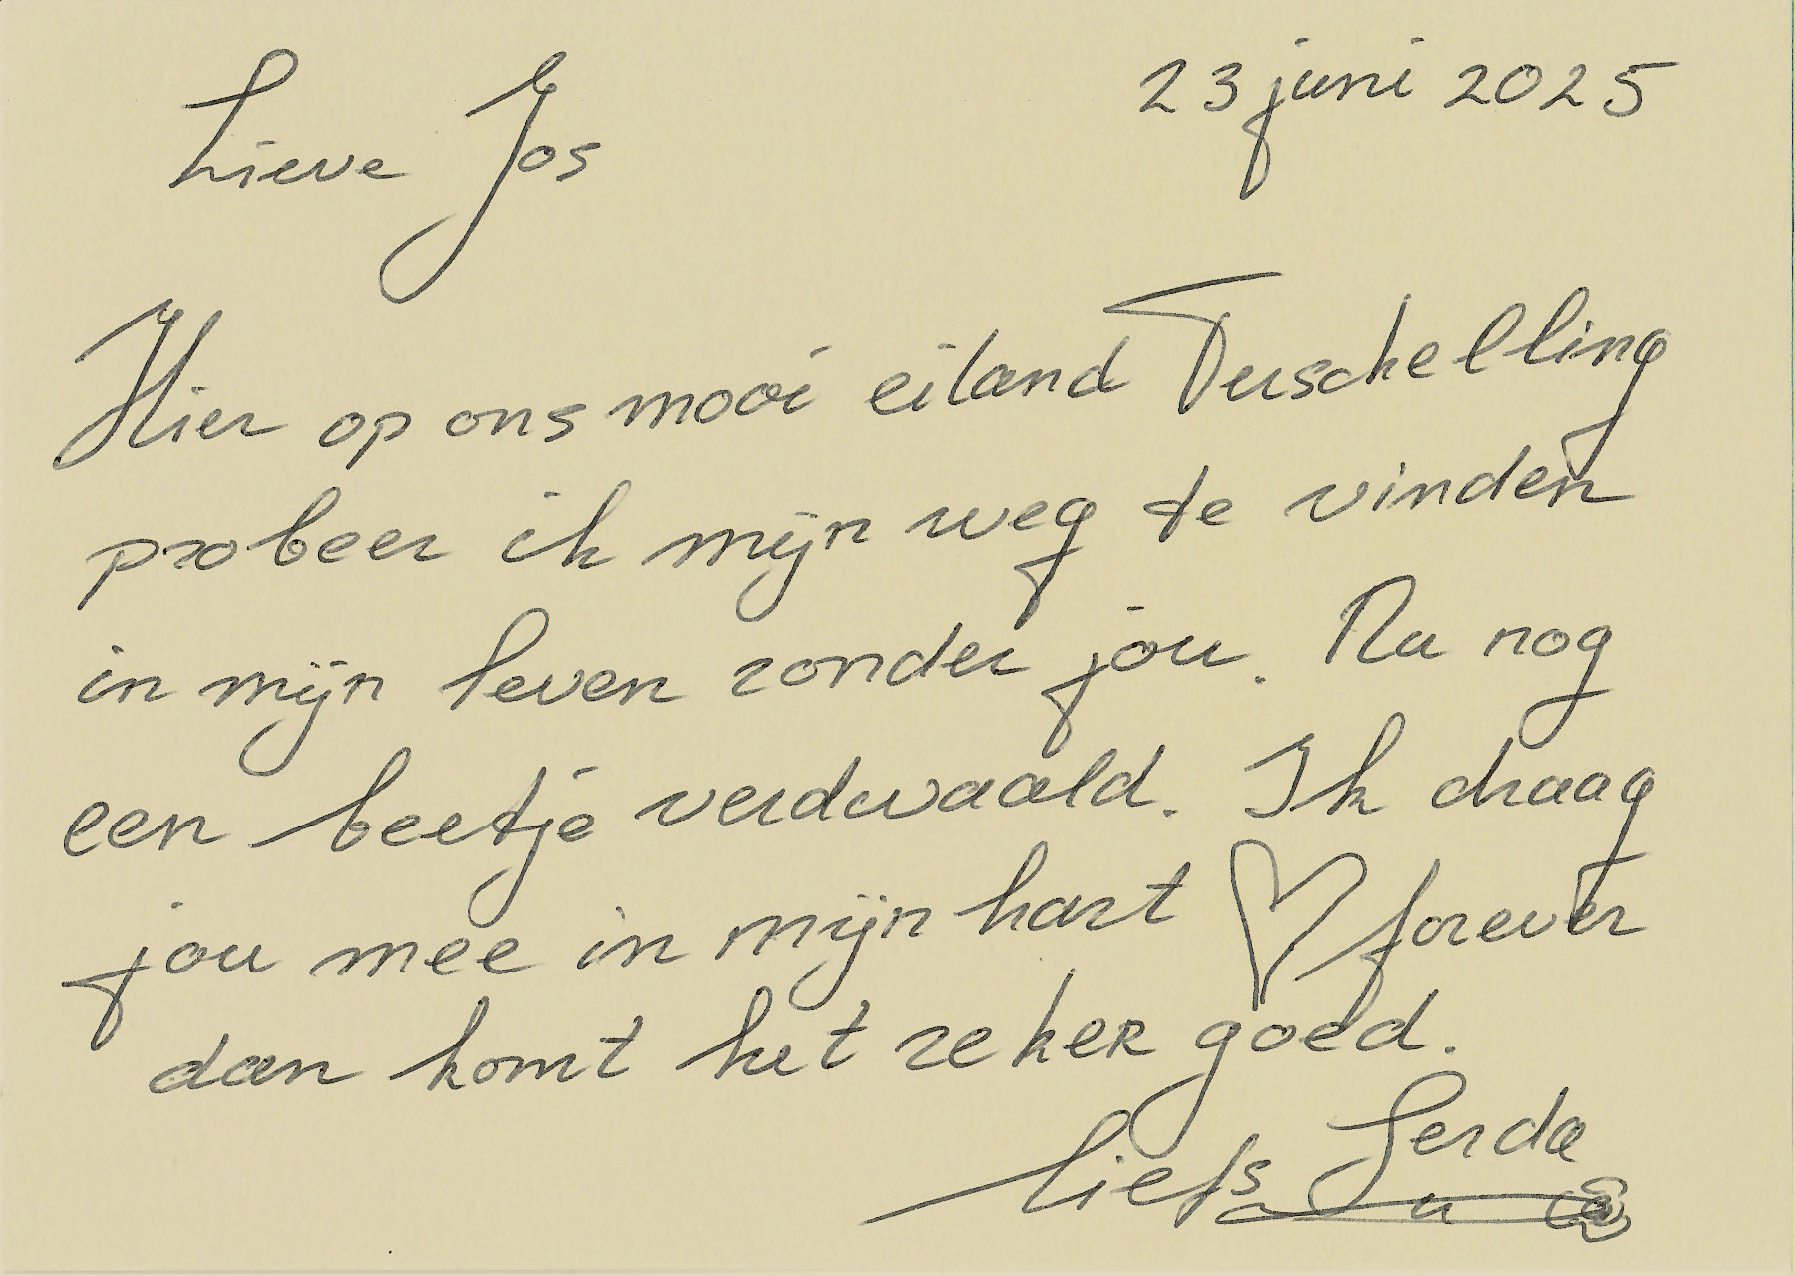 23 juni 2025
Lieve Jos
Hier op ons mooi eiland Terschelling
probeer ik mijn weg te vinden
in mijn leven zonder jou. Nu nog
een beetje verdwaald. Ik draag
jou mee in mijn hart ♡ forever
dan komt het zeker goed.
liefs Gerda